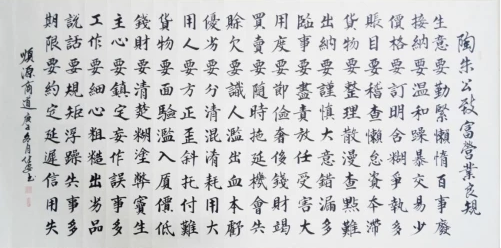 陶朱公致富營業之規
生意要勤緊懶惰百事廢
接納要溫和躁暴交易少
價格要訂明含糊爭執多
賬目要稽查懶怠資本滯
貨物要整理散漫查點難
出納要謹慎大意錯漏多
臨事要盡責放任受害大
用度要節儉奢侈錢財竭
買賣要隨時拖延機會失
賒欠要識人濫出血本虧
優劣要分清混淆耗用大
用人要方正歪斜托付難
貨物要面驗濫入質價低
錢財要清楚糊塗弊竇生
主心要鎮定妄作誤事多
工作要細心粗糙出劣品
說話要規矩浮躁失事多
期限要約定延遲信用失
順源商道 庚子冬月